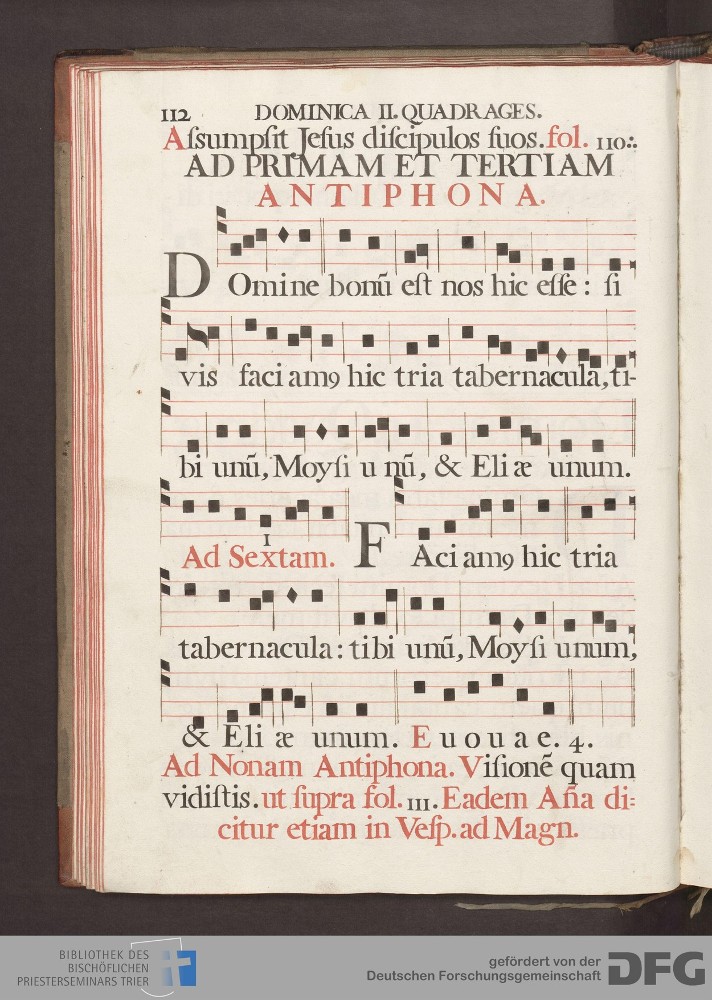 112 DOMINICA II. QUADRAGES.
Aſsumpſit Jeſus diſcipulos ſuos. fol. 110:.
AD PRIMAM ET TERTIAM
ANTIPHONA.
DOmine bonũ eſt nos hic eſſe : ſi
vis faciamꝰ hic tria tabernacula, ti-
bi unũ, Moyſi unũ, & Eliæ unum.
1
Ad Sextam. FAciamꝰ hic tria
tabernacula : tibi unũ, Moyſi unum,
& Eliæ unum. Euouae. 4.
Ad Nonam Antiphona. Viſionẽ quam
vidiſtis. ut ſupra fol. 111. Eadem Aña di=
citur etiam in Veſp. ad Magn.
BIBLIOTHEK DES
BISCHÖFLICHEN
PRIESTERSEMINARS TRIER
gefördert von der
Deutschen Forschungsgemeinschaft
DFG